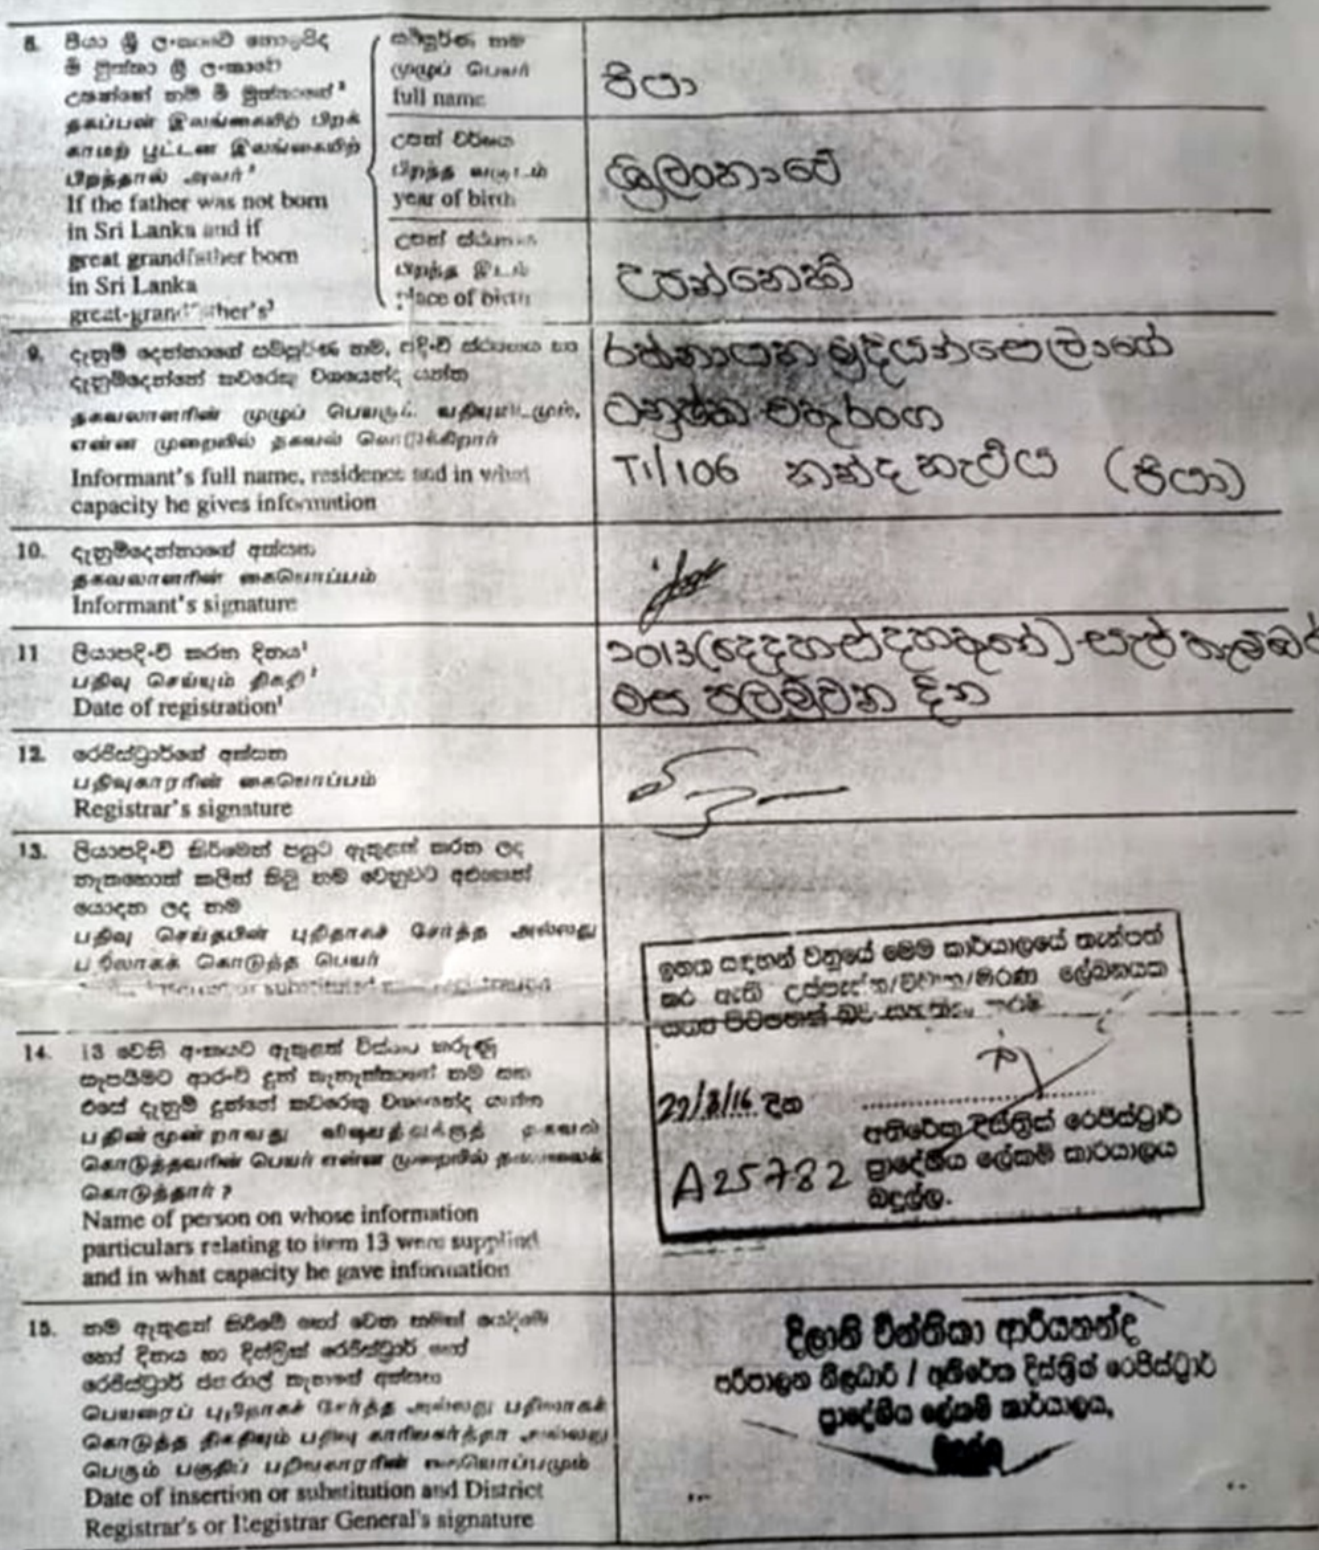 8. පියා ශ්‍රී ලංකාවේ නොඉපිද
මී මුත්තා ශ්‍රී ලංකාවේ
උපන්නේ නම් මී මුත්තාගේ
தகப்பன் இலங்கையிற் பிறக்
காமற் பூட்டன் இலங்கையிற்
பிறந்தால் அவர்
If the father was not born
in Sri Lanka and if
great grandfather born
in Sri Lanka
great-grandfather's³
සම්පූර්ණ නම
முழுப் பெயர்
full name
පියා
උපන් වර්ෂය
பிறந்த வருடம்
year of birth
ශ්‍රී ලංකාවේ
උපන් ස්ථානය
பிறந்த இடம்
place of birth
උපන්නෙහි
9. දැනුම් දෙන්නාගේ සම්පූර්ණ නම, පදිංචි ස්ථානය හා
දැනුම්දෙන්නේ කවරෙකු වශයෙන්ද යන්න
தகவலாளரின் முழுப் பெயரும் வதிவிடமும்,
என்ன முறையில் தகவல் கொடுக்கிறார்
Informant's full name, residence and in what
capacity he gives information
රත්නායක මුදියන්සෙලාගේ
ධනුෂ්ක චතුරංග
T1/106 කන්දකැටිය (පියා)
10. දැනුම්දෙන්නාගේ අත්සන
தகவலாளரின் கையொப்பம்
Informant's signature
11 ලියාපදිංචි කරන දිනය¹
பதிவு செய்யும் திகதி¹
Date of registration¹
2013(දෙදහස්දහතුනේ) සැප්තැම්බර්
මස පලමුවන දින
12. රෙජිස්ට්‍රාර්ගේ අත්සන
பதிவுகாரரின் கையொப்பம்
Registrar's signature
13. ලියාපදිංචි කිරීමෙන් පසුව ඇතුළත් කරන ලද
නැතහොත් කලින් කිවූ නම වෙනුවට අළුතෙන්
යොදන ලද නම
பதிவு செய்தபின் புதிதாகச் சேர்த்த அல்லது
பதிலாகக் கொடுத்த பெயர்
ඉහත සඳහන් වනුයේ මෙම කාර්යාලයේ තැන්පත්
කර ඇති උප්පැන්න/විවාහ/මරණ ලේඛනයක
සත්‍ය පිටපතක් බව සහතික කරමි
22/8/16 දින
A25782
අතිරේක දිස්ත්‍රික් රෙජිස්ට්‍රාර්
ප්‍රාදේශීය ලේකම් කාර්යාලය
බදුල්ල.
14. 13 වෙනි අංකයට ඇතුළත් විස්තර කරුණු
සැපයීමට ආරංචි දුන් තැනැත්තාගේ නම සහ
එසේ දැනුම් දුන්නේ කවරෙකු වශයෙන්ද යන්න
பதின்மூன்றாவது விஷயத்துக்குத் தகவல்
கொடுத்தவரின் பெயர் என்ன முறையில் தகவலைக்
கொடுத்தார்?
Name of person on whose information
particulars relating to item 13 were supplied
and in what capacity he gave information
15. නම ඇතුළත් කිරීමේ හෝ වෙන නමක් යෙදීමේ
හෝ දිනය හා දිස්ත්‍රික් රෙජිස්ට්‍රාර් හෝ
රෙජිස්ට්‍රාර් ජනරාල් තැනගේ අත්සන
பெயரைப் புதிதாகச் சேர்த்த அல்லது பதிலாகக்
கொடுத்த திகதியும் பதிவு காரியகர்த்தா அல்லது
பெரும் பகுதிப் பதிவுகாரரின் கையொப்பமும்
Date of insertion or substitution and District
Registrar's or Registrar General's signature
දිලානි චින්තිකා ආරියනන්ද
පරිපාලන නිලධාරි / අතිරේක දිස්ත්‍රික් රෙජිස්ට්‍රාර්
ප්‍රාදේශීය ලේකම් කාර්යාලය,